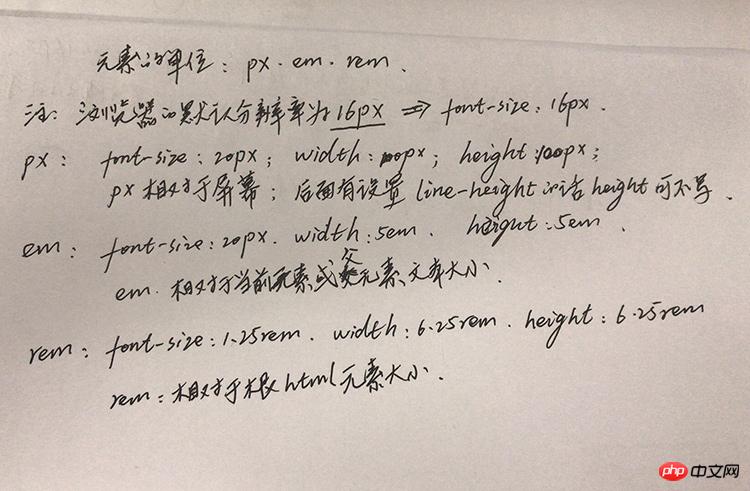 元素的单位：px . em . rem .
注：浏览器的默认分辨率为16px => font-size：16px .
px： font-size：20px； width：100px； height：100px；
px 相对于屏幕； 后面有设置 line-height 的话 height 可不写 .
em： font-size：20px . width：5em . height：5em .
em . 相对于当前元素或父元素文本大小 .
rem： font-size：1.25rem . width：6.25rem . height：6.25rem
rem：相对于根html元素大小 .
php 中文网